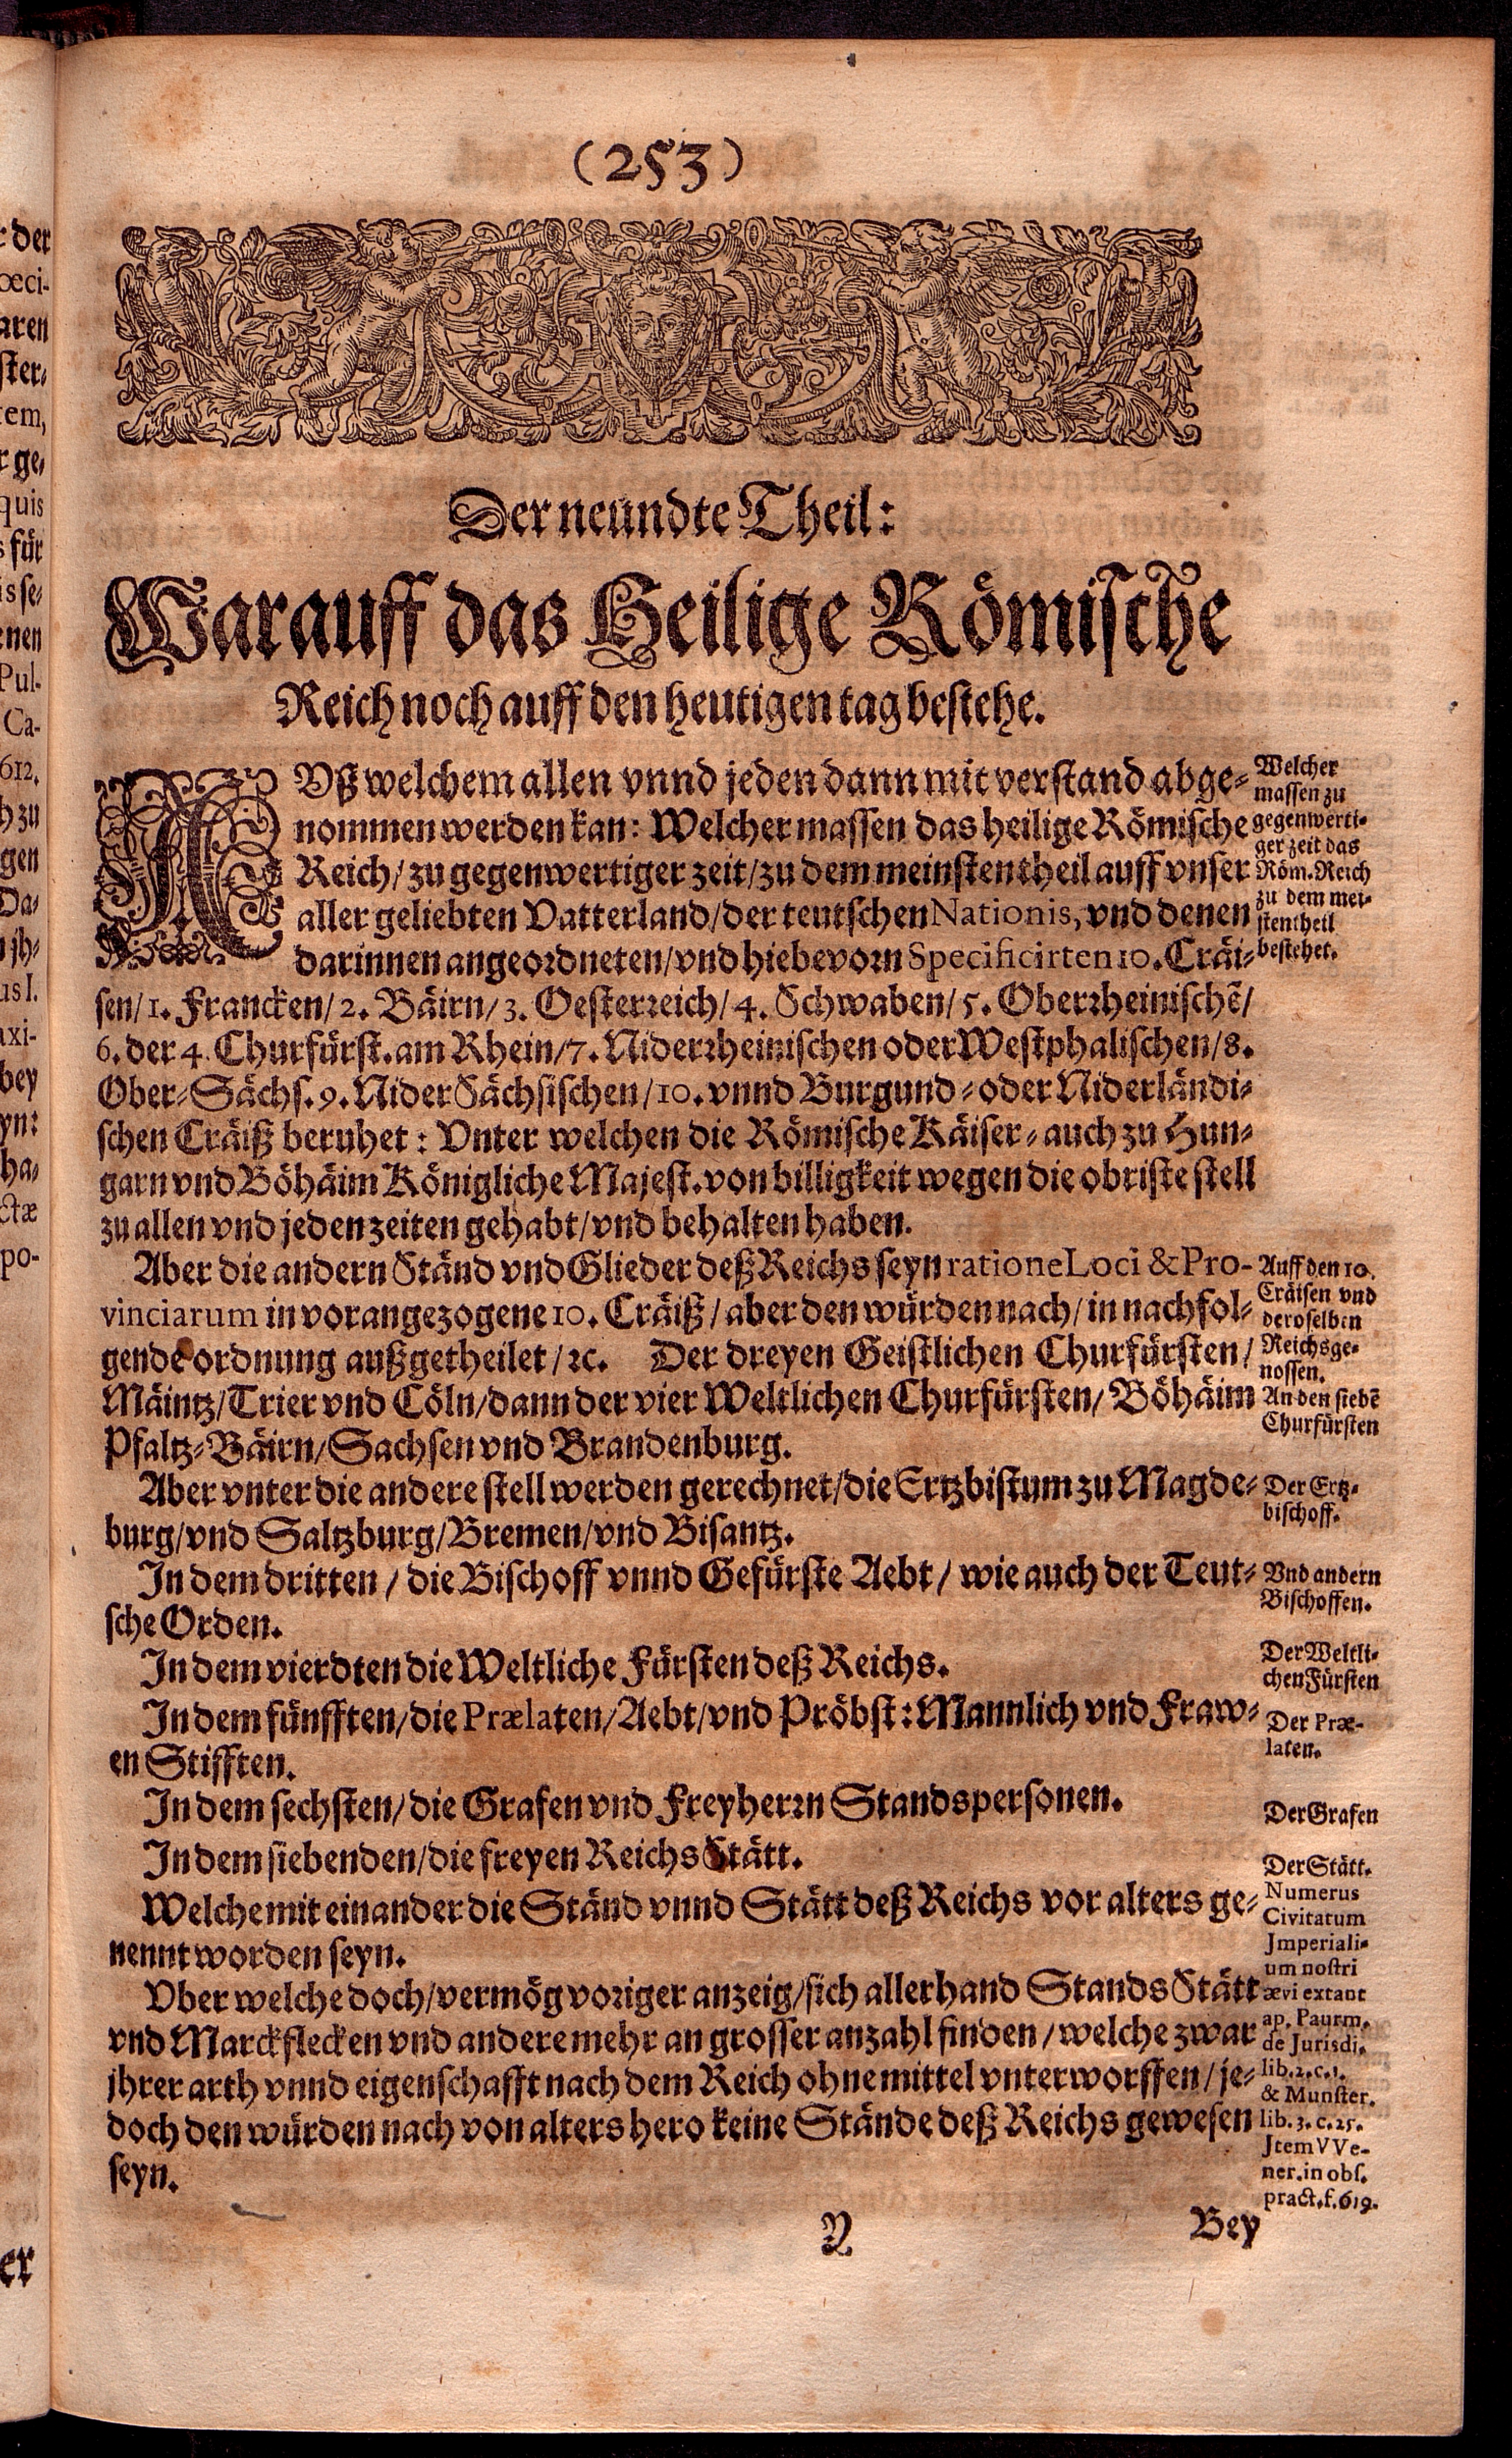 (253)
Der neundte Theil:
Warauff das Heilige Römische
Reich noch auff den heutigen tag bestehe.
AVß welchem allen vnnd jeden dann mit verstand abge-
nommen werden kan: Welcher massen das heilige Römische
Reich/ zu gegenwertiger zeit/ zu dem meinsten theil auff vnser
aller geliebten Vatterland/ der teutschen Nationis, vnd denen
darinnen angeordneten/ vnd hiebevorn Specificirten 10. Cräi-
sen/ 1. Francken/ 2. Bäirn/ 3. Oesterreich/ 4. Schwaben/ 5. Oberrheinischẽ/
6. der 4. Churfürst. am Rhein/ 7. Niderrheinischen oder Westphalischen/ 8.
Ober-Sächs. 9. Nider Sächsischen/ 10. vnnd Burgund- oder Niderländi-
schen Cräiß beruhet: Vnter welchen die Römische Käiser- auch zu Hun-
garn vnd Böhäim Königliche Majest. von billigkeit wegen die obriste stell
zu allen vnd jeden zeiten gehabt/ vnd behalten haben.
Aber die andern Ständ vnd Glieder deß Reichs seyn ratione Loci & Pro-
vinciarum in vorangezogene 10. Cräiß/ aber den würden nach/ in nachfol-
gende ordnung außgetheilet/ ꝛc. Der dreyen Geistlichen Churfürsten/
Mäintz/ Trier vnd Cöln/ dann der vier Weltlichen Churfürsten/ Böhäim
Pfaltz-Bäirn/ Sachsen vnd Brandenburg.
Aber vnter die andere stell werden gerechnet/ die Ertzbistum zu Magde-
burg/ vnd Saltzburg/ Bremen/ vnd Bisantz.
In dem dritten/ die Bischoff vnnd Gefürste Aebt/ wie auch der Teut-
sche Orden.
In dem vierdten die Weltliche Fürsten deß Reichs.
In dem fünfften/ die Prælaten/ Aebt/ vnd Pröbst: Mannlich vnd Fraw-
en Stifften.
In dem sechsten/ die Grafen vnd Freyherrn Standspersonen.
In dem siebenden/ die freyen Reichs Stätt.
Welche mit einander die Ständ vnnd Stätt deß Reichs vor alters ge-
nennt worden seyn.
Vber welche doch/ vermög voriger anzeig/ sich allerhand Stands Stätt
vnd Marckflecken vnd andere mehr an grosser anzahl finden/ welche zwar
jhrer arth vnnd eigenschafft nach dem Reich ohne mittel vnterworffen/ je-
doch den würden nach von alters hero keine Stände deß Reichs gewesen
seyn.
Y
Bey
Welcher
massen zu
gegenwerti-
ger zeit das
Röm. Reich
zu dem mei-
sten theil
bestehet.
Auff den 10.
Cräisen vnd
deroselben
Reichsge-
nossen.
An den siebẽ
Churfürsten
Der Ertz-
bischoff.
Vnd andern
Bischoffen.
Der Weltli-
chen Fürsten
Der Præ-
laten.
Der Grafen
Der Stätt.
Numerus
Civitatum
Jmperiali-
um nostri
ævi extant
ap. Paurm.
de Jurisdi.
lib. 2. c. 1.
& Munster.
lib. 3. c. 25.
Jtem VVe-
ner. in obs.
pract. f. 619.
r der
œci-
aren
ster-
tem,
r ge-
quis
s für
is se-
enen
Pul-
Ca-
612.
h zu
gen
Da-
n jh-
us I.
axi-
bey
yn:
ha-
ctæ
po-
er